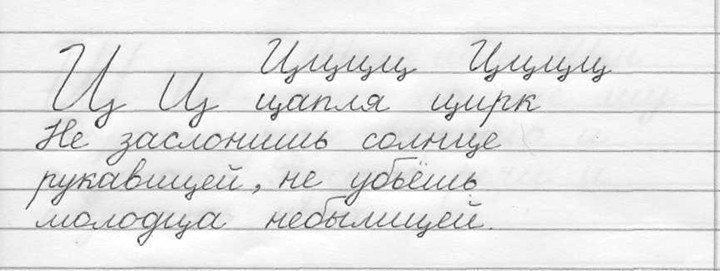 Ццццц Ццццц
Ц Ц цапля цирк
Не заслонишь солнце
рукавицей, не убьёшь
молодца небылицей.